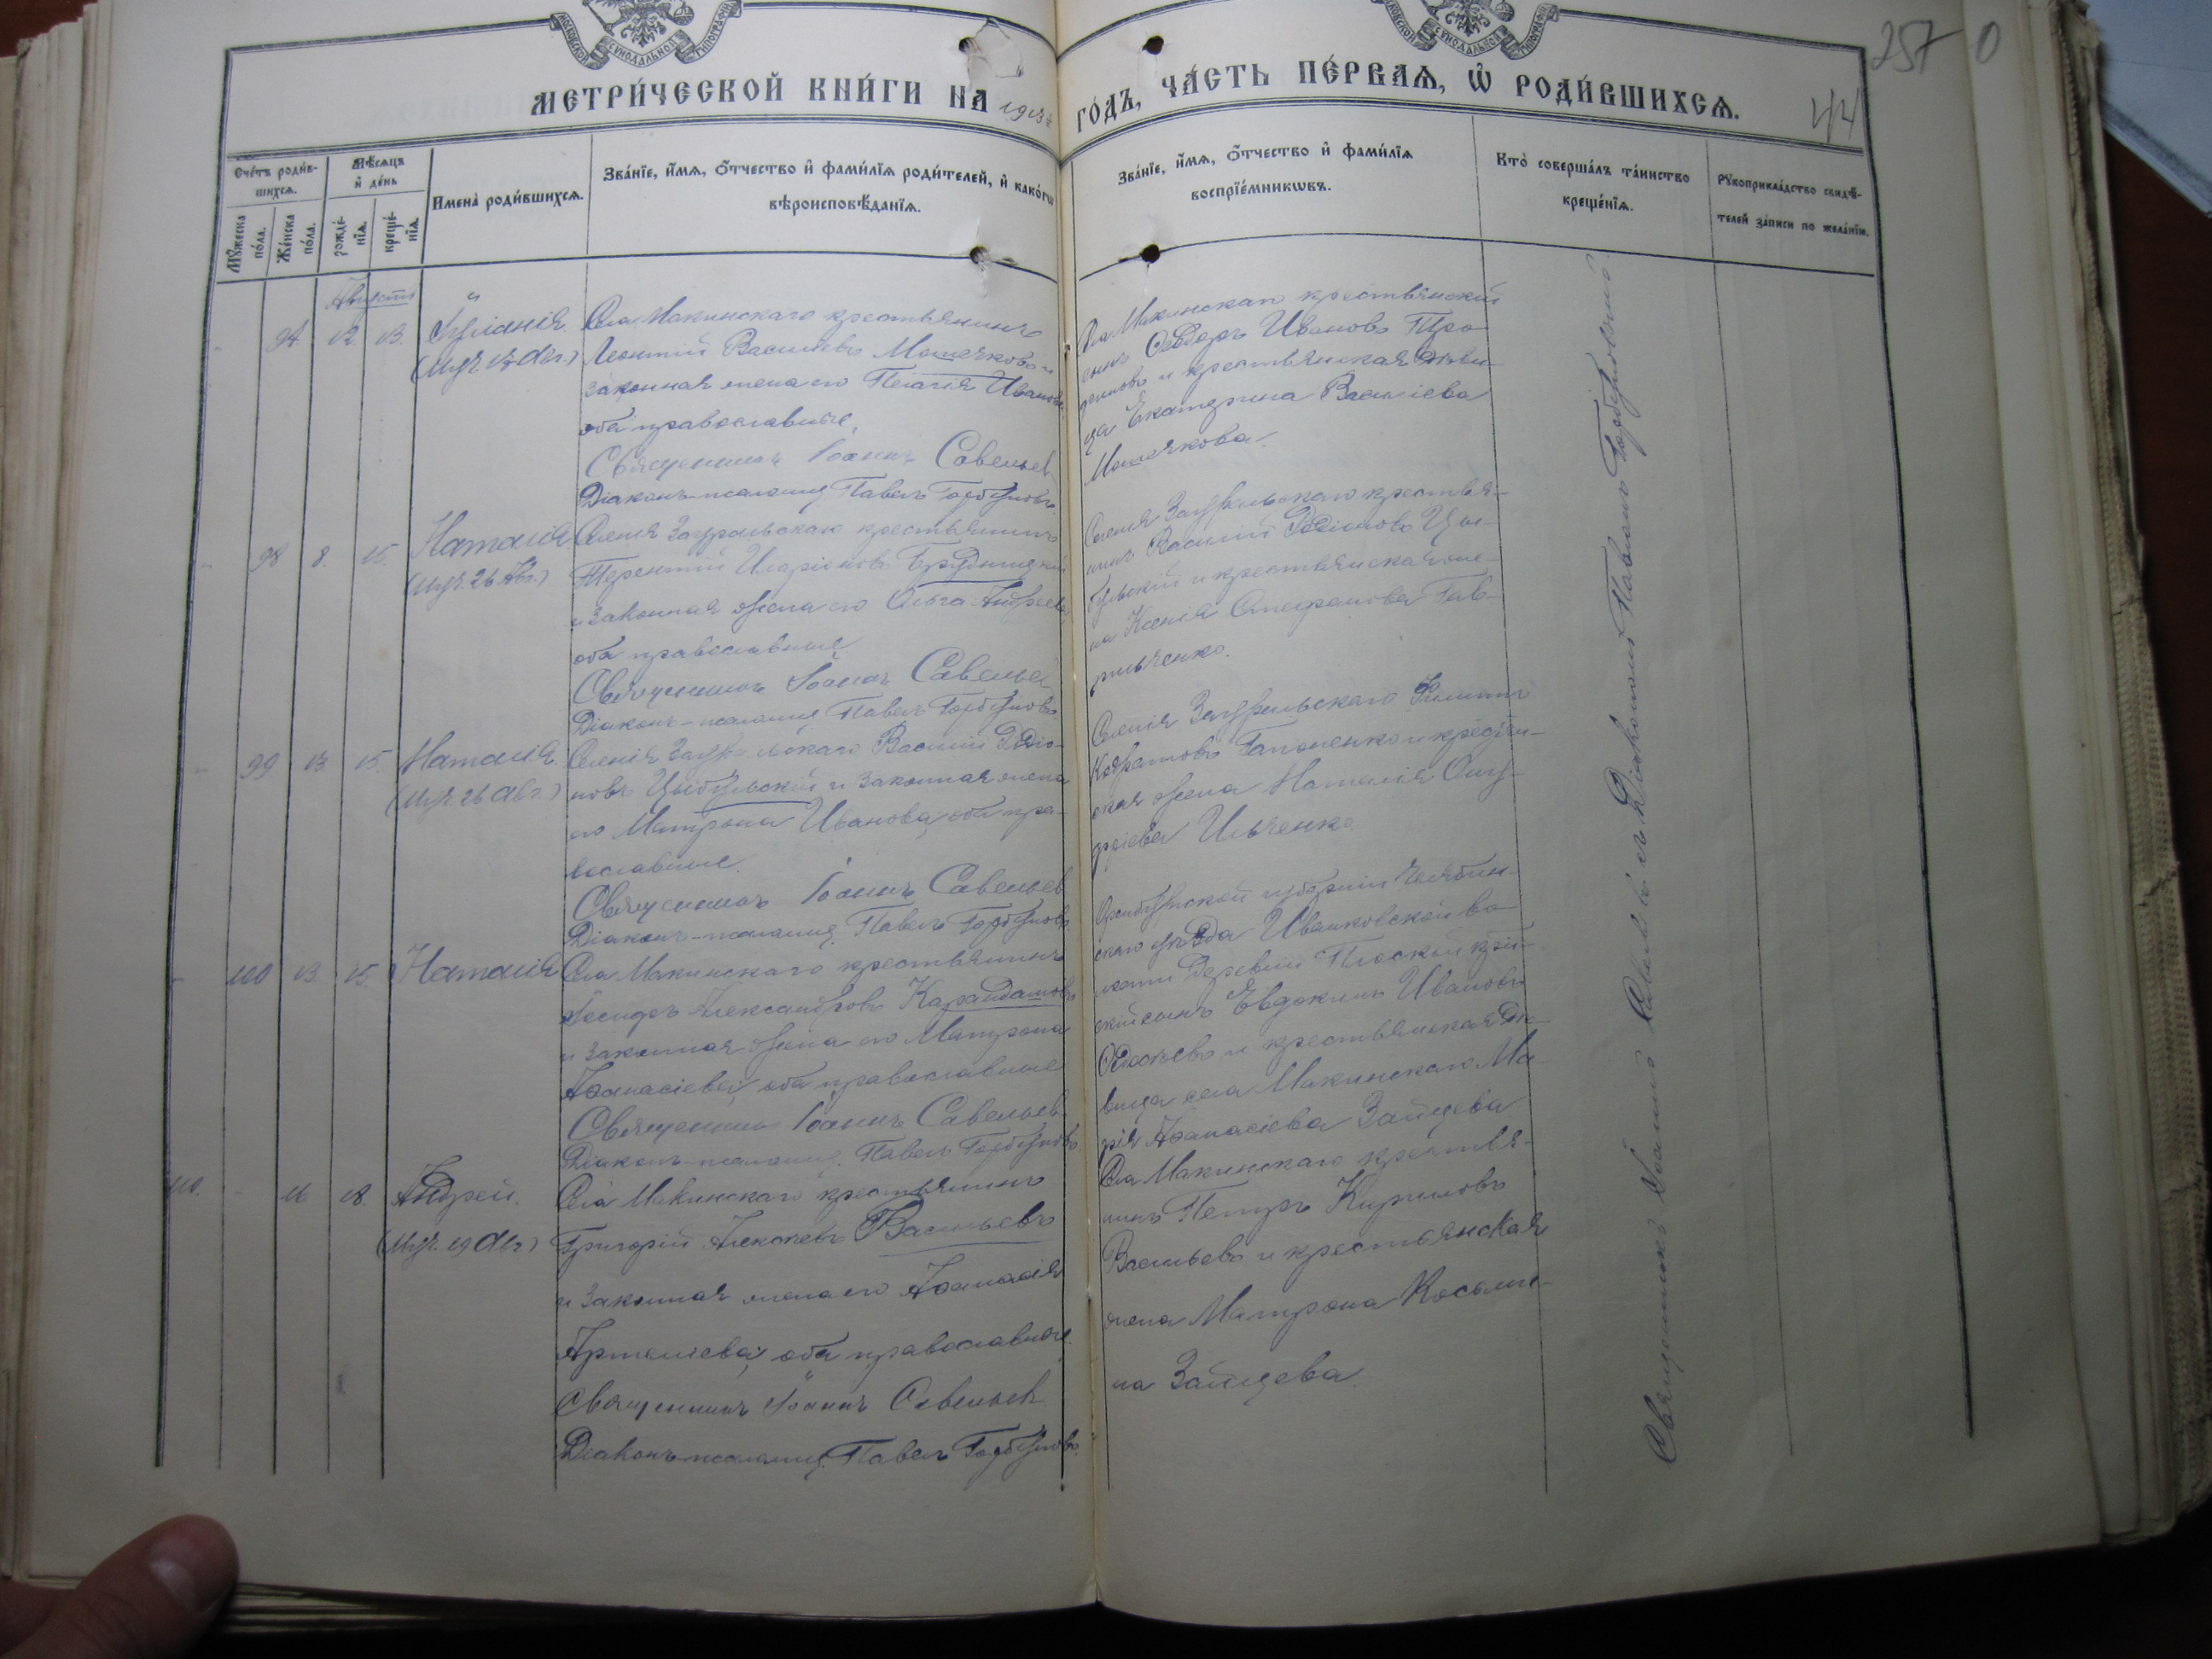 МОСКОВСКОЙ СѴНОДАЛЬНОЙ ТИПОГРАФІИ
МОСКОВСКОЙ СѴНОДАЛЬНОЙ ТИПОГРАФІИ
257
44
МЕТРИ́ЧЕСКОЙ КНИ́ГИ НА 1913 ГО́ДЪ, ЧА́СТЬ ПЕ́РВАѦ, Ѡ҆ РОДИ́ВШИХСѦ.
Сче́тъ роди́в-
шихсѧ.
Мꙋ́жеска по́ла.
Же́нска по́ла.
Мѣ́сѧцъ
и҆ де́нь
рожде́-
нїѧ.
креще́-
нїѧ.
Имена̀ роди́вшихсѧ.
Зва́нїе, и҆́мѧ, ѻ҆́тчество и҆ фами́лїѧ роди́телей, и҆ како́гѡ
вѣроисповѣ́данїѧ.
Зва́нїе, и҆́мѧ, ѻ҆́тчество и҆ фами́лїѧ
воспрїе́мникѡвъ.
Кто̀ соверша́лъ та́инство
креще́нїѧ.
Рꙋкоприкла́дство свидѣ́-
телей за́писи по жела́нїю.
Августъ
12 13.
Села Макинскаго крестьянинъ
Леонтій Васильевъ Мошечковъ и
законная жена его Пелагія Иванова,
оба православные.
Священникъ Іоаннъ Савельев
Діаконъ-псаломщ. Павелъ Горбуновъ
Села Макинскаго крестьянскій
сынъ Ѳеодоръ Ивановъ
и крестьянская дѣви-
ца Екатерина Васильева
Мошечкова.
98 8. 15.
Наталія.
(Муч. 26 Авг.)
Селенія Зауральскаго крестьянинъ
Терентій Иларіоновъ
и законная жена его Ольга Андреева
оба православные.
Священникъ Іоаннъ Савельев
Діаконъ-псаломщ. Павелъ Горбуновъ.
Селенія Зауральскаго крестья-
нинъ Василій Родіоновъ Цы-
бульскій и крестьянская же-
на Ксенія Стефанова Гав-
рильченко.
99 13 15.
Наталія
(Муч. 26 авг.)
Селенія Зауральскаго Василій Родіо-
новъ Цыбульскій и законная жена
его Матрона Иванова, оба пра-
вославные.
Священникъ Іоаннъ Савельев
Діаконъ-псаломщ. Павелъ Горбуновъ
Селенія Зауральскаго Филиппъ
Кодратовъ Гапоненко и крестьян-
ская жена Наталія Ону-
фріева Ильченко
100 13 15.
Наталія
Села Макинскаго крестьянинъ
Іосифъ Александровъ Карандашовъ
и законная жена его Матрона
Аѳанасіева, оба православные
Священникъ Іоаннъ Савельев
Діаконъ-псаломщ. Павелъ Горбуновъ
Оренбургской губерніи Челябин-
скаго уѣзда Иванковской во-
лости деревни Плоской кре-
скій сынъ Евдокимъ Ивановъ
и крестьянская дѣ-
вица села Макинскаго Ма-
рія Аѳанасіева Зайцева
16 18.
Андрей.
(Муч. 19 Авг)
Села Макинскаго крестьянинъ
Григорій Алексѣевъ Васильевъ
и законная жена его Аѳанасія
Артеміева, оба православные
Священникъ Іоаннъ Савельев
Діаконъ-псаломщ. Павелъ Горбуновъ
Села Макинскаго крестья-
нинъ Петръ Кириловъ
Васильевъ и крестьянская
жена Матрона Косьми-
на Зайцева.
Священникъ Іоаннъ Савельевъ съ Діакономъ Павломъ Горбуновымъ